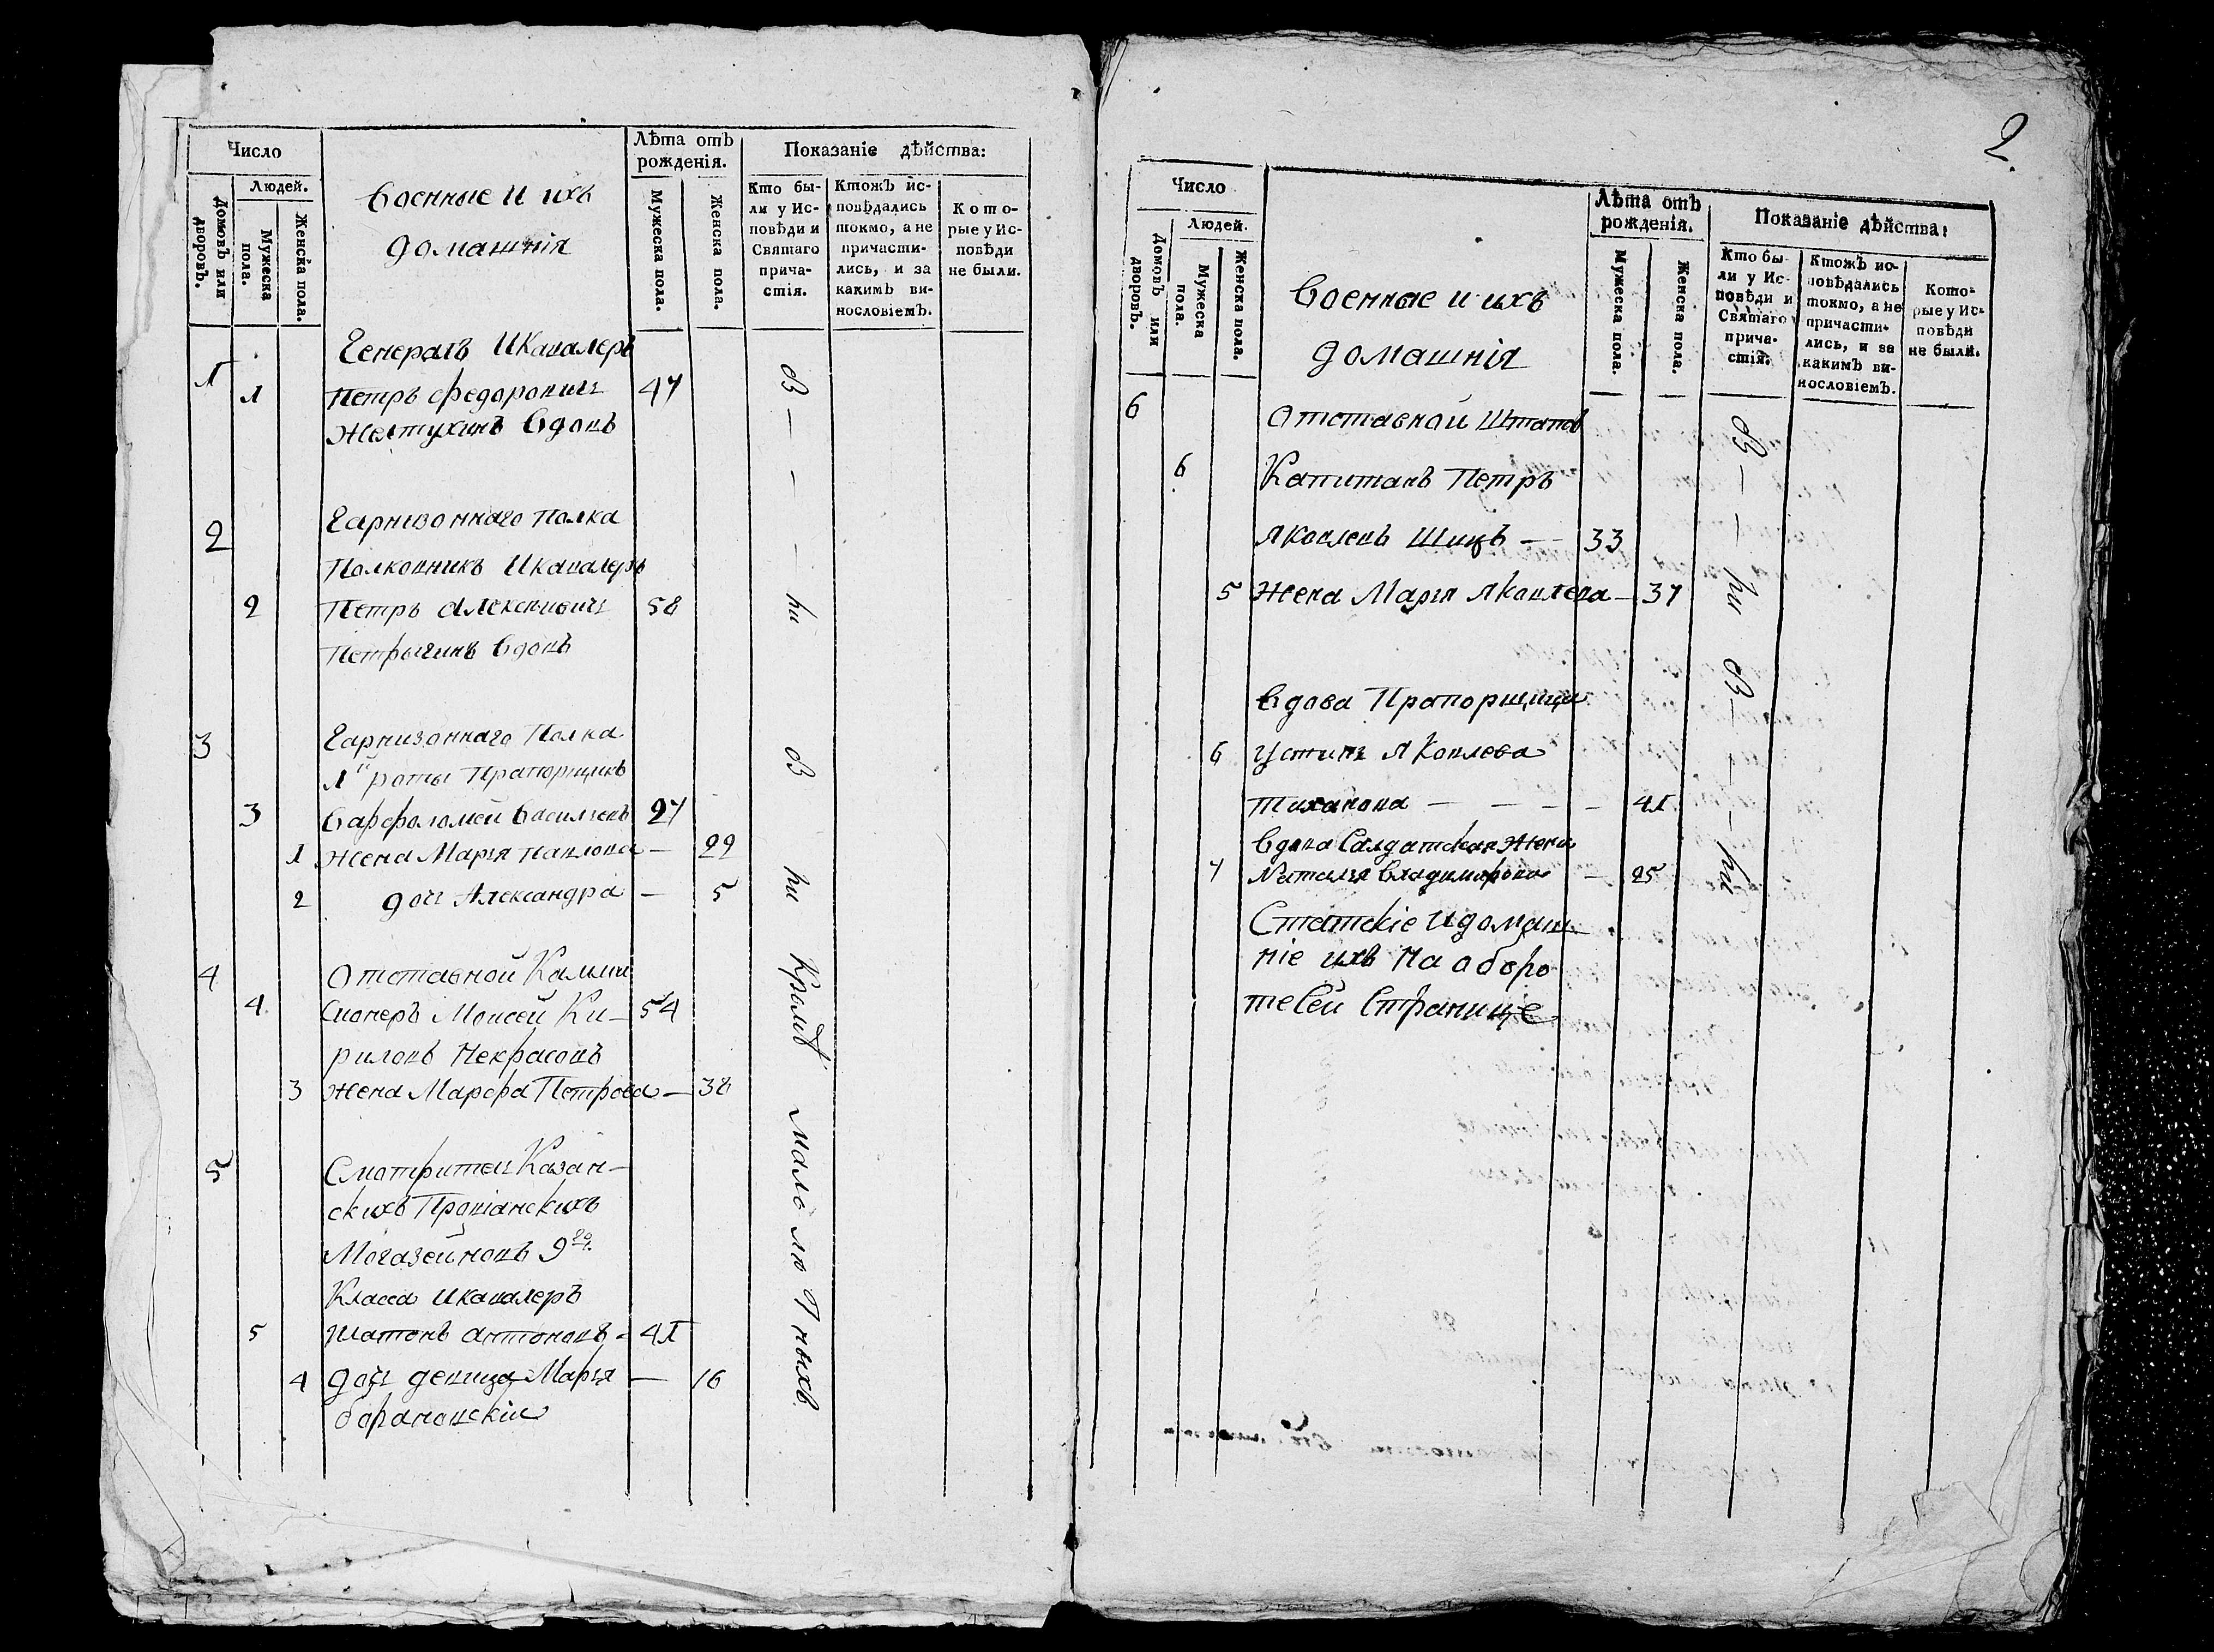 Число
Людей.
Домовъ или дворовъ.
Мужеска пола.
Женска пола.
Военные и ихъ
домашнія
Лѣта отъ
рожденія.
Мужеска пола.
Женска пола.
Показаніе дѣйства:
Кто бы-
ли у Ис-
повѣди и
Святаго
прича-
стія.
Ктожъ ис-
повѣдались
токмо, а не
причасти-
лись, и за
какимъ ви-
нословіемъ.
Кото-
рые у Ис-
повѣди
не были.
1 Генералъ и Кавалеръ
1 Петръ Федоровичь 47
Желтухинъ вдовъ
2 Гарнизоннаго Полка
Полковникъ и Кавалеръ
2 Петръ Алексѣевичь 58
вдовъ
3 Гарнизоннаго Полка
1й роты Прапорщикъ
3 Варфоломей Васильевъ 27
1 Жена Марья Павлова — 22
2 дочь Александра — 5
4 Отставной Камми
4 сионеръ Моисей Ки- 54
риловъ Некрасовъ
3 Жена Марфа Петрова — 38
5 Смотритель Казан-
скихъ Провіанскихъ
Могазейновъ 9го
Класса и Кавалеръ
5 Антоновъ - 41
4 дочь девица Марья — 16
барановскіи
бы — — — ли
бы ли Кромѣ малолютныхъ
2
Число
Людей.
Домовъ или дворовъ.
Мужеска пола.
Женска пола.
Военные и ихъ
домашнія
Лѣта отъ
рожденія.
Мужеска пола.
Женска пола.
Показаніе дѣйства:
Кто бы-
ли у Ис-
повѣди и
Святаго
прича-
стія.
Ктожъ ис-
повѣдались
токмо, а не
причасти-
лись, и за
какимъ ви-
нословіемъ.
Кото-
рые у Ис-
повѣди
не были.
6 Отставной Штапсъ
6 Капитанъ Петръ
Яковлевъ Шицъ — 33
5 Жена Марья Яковлева — 37
Вдова Прапорщица
6 Устинья Яковлева
Тиханова — — — — 41
Вдова Салдатская Жена
7 Наталья Владимирова — 25
Статскіе и домаш-
ніе ихъ на оборо
те сей Странице
бы — — ли
бы — — — ли